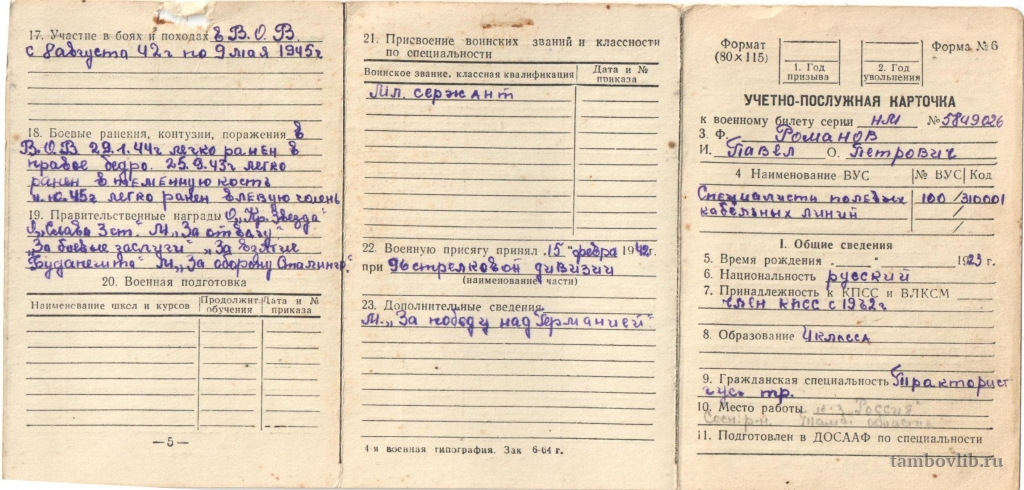 17. Участие в боях и походах в В.О.В.
с 8 августа 42 г по 9 мая 1945 г
18. Боевые ранения, контузии, поражения в
В.О.В 29.1.44 г легко ранен в
правое бедро. 25.9.43 г легко
ранен в теменную кость
легко ранен в левую голень
19. Правительственные награды О „Кр. Звезда"
Слава 3 ст. М „За отвагу"
„За боевые заслуги" „За взятие
Будапешта" М „За оборону
20. Военная подготовка
Наименование школ и курсов
Продолжит. обучения
Дата и № приказа
—5—
21. Присвоение воинских званий и классности
по специальности
Воинское звание, классная квалификация
Дата и № приказа
Мл. сержант
22. Военную присягу принял „15" февра 1942 г.
при стрелковой дивизии
(наименование части)
23. Дополнительные сведения
М. „За победу над Германией"
4-я военная типография. Зак 6-64 г.
Формат
(80×115)
1. Год
призыва
2. Год
увольнения
Форма № 6
УЧЕТНО-ПОСЛУЖНАЯ КАРТОЧКА
к военному билету серии НМ № 5849026
3. Ф. Романов
И. Павел О. Петрович
4 Наименование ВУС № ВУС Код
Специалисты полевых 100 / 310001
кабельных линий
I. Общие сведения
5. Время рождения „ " 1923 г.
6. Национальность русский
7. Принадлежность к КПСС и ВЛКСМ
член КПСС с 1962 г
8. Образование 4 класса
9. Гражданская специальность Тракторист
гус. тр.
10. Место работы к-з „Россия"
Сосн. р-н Тамб. области
11. Подготовлен в ДОСААФ по специальности
tambovlib.ru